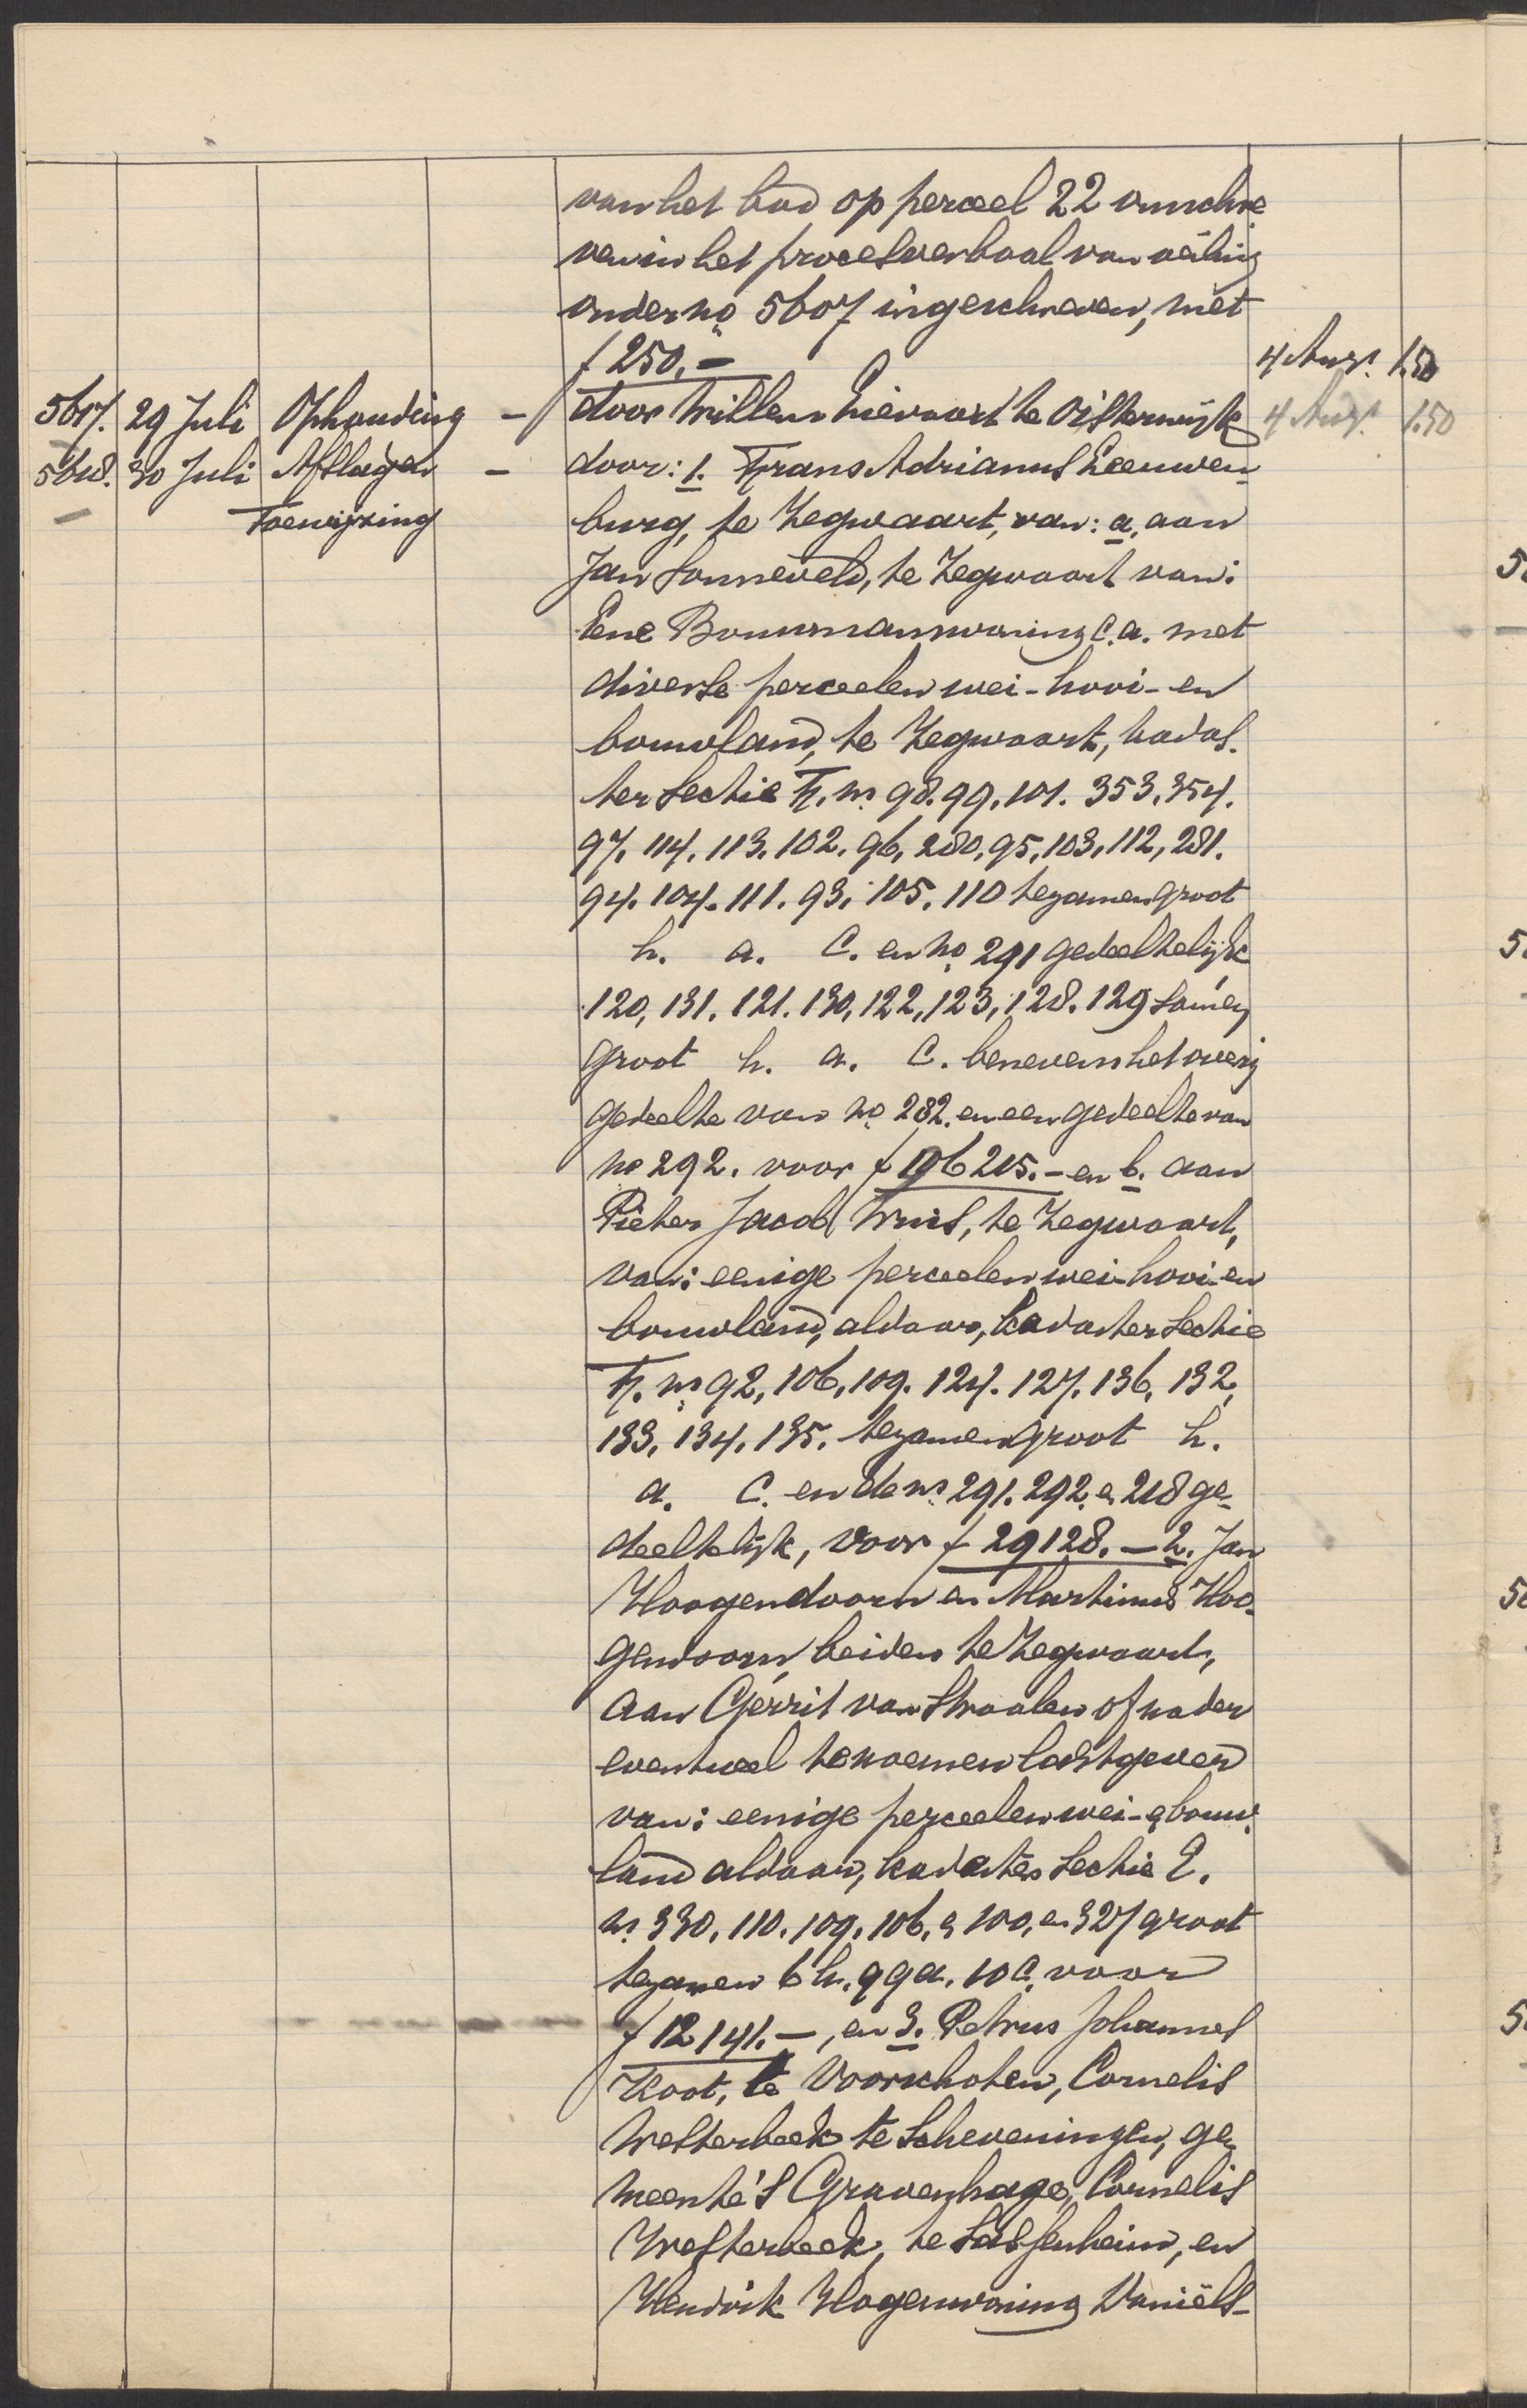 van het bod op perceel 22 omschre
ven in het procesverbaal van veiling
onder no 5607 ingeschreven, met
f 250.- 4 Aug. 1.50
5617. 29 Juli Ophouding - door Willem Lievaart te Oisterwijk 4 Aug. 1.50
5618. 30 Juli Afslagen - door: 1. Frans Adrianus Leeuwen-
Toewijzing burg, te Zegwaart, van: a. aan
Jan Sonneveld, te Zegwaart van:
Eene Bouwmanswoning c.a. met
diverse perceelen wei- hooi- en
bouwland, te Zegwaart, kadas-
ter Sectie F. nos 98. 99. 101. 353. 354.
97. 114. 113. 102. 96, 280, 95, 103, 112, 281.
94. 104. 111. 93. 105. 110 tezamen groot
h. a. c. en no 291 gedeeltelijk
120, 131. 121. 130, 122, 123, 128. 129 samen
groot h. a. c. benevens het overig
gedeelte van no 282. en een gedeelte van
no 292. voor f 106215.- en b. aan
Pieter Jacob, te Zegwaart,
van: eenige perceelen wei- hooi- en
bouwland, aldaar, kadaster Sectie
F. nos 92, 106, 109. 124. 127. 136, 132,
133, 134, 135. tezamen groot h.
a. c. en de nos 291. 292. en 218 ge-
deeltelijk, voor f 29128.- 2. Jan
Hoogendoorn en Martinus Hoo-
gendoorn, beiden te Zegwaart,
aan Gerrit van Straalen of nader
eventueel te noemen lastgever
van: eenige perceelen wei- en bouw-
land aldaar, kadaster Sectie E.
nos 330, 110. 109. 106, en 100, en 327 groot
tezamen 6 h. 99 a. 10 c. voor
f 12141.-, en 3. Petrus Johannes
Koot, te Voorschoten, Cornelis
Westerbeek te Scheveningen, ge-
meente 's Gravenhage, Cornelis
Westerbeek, te Sassenheim, en
Hendrik Hogenwoning Daniëls-